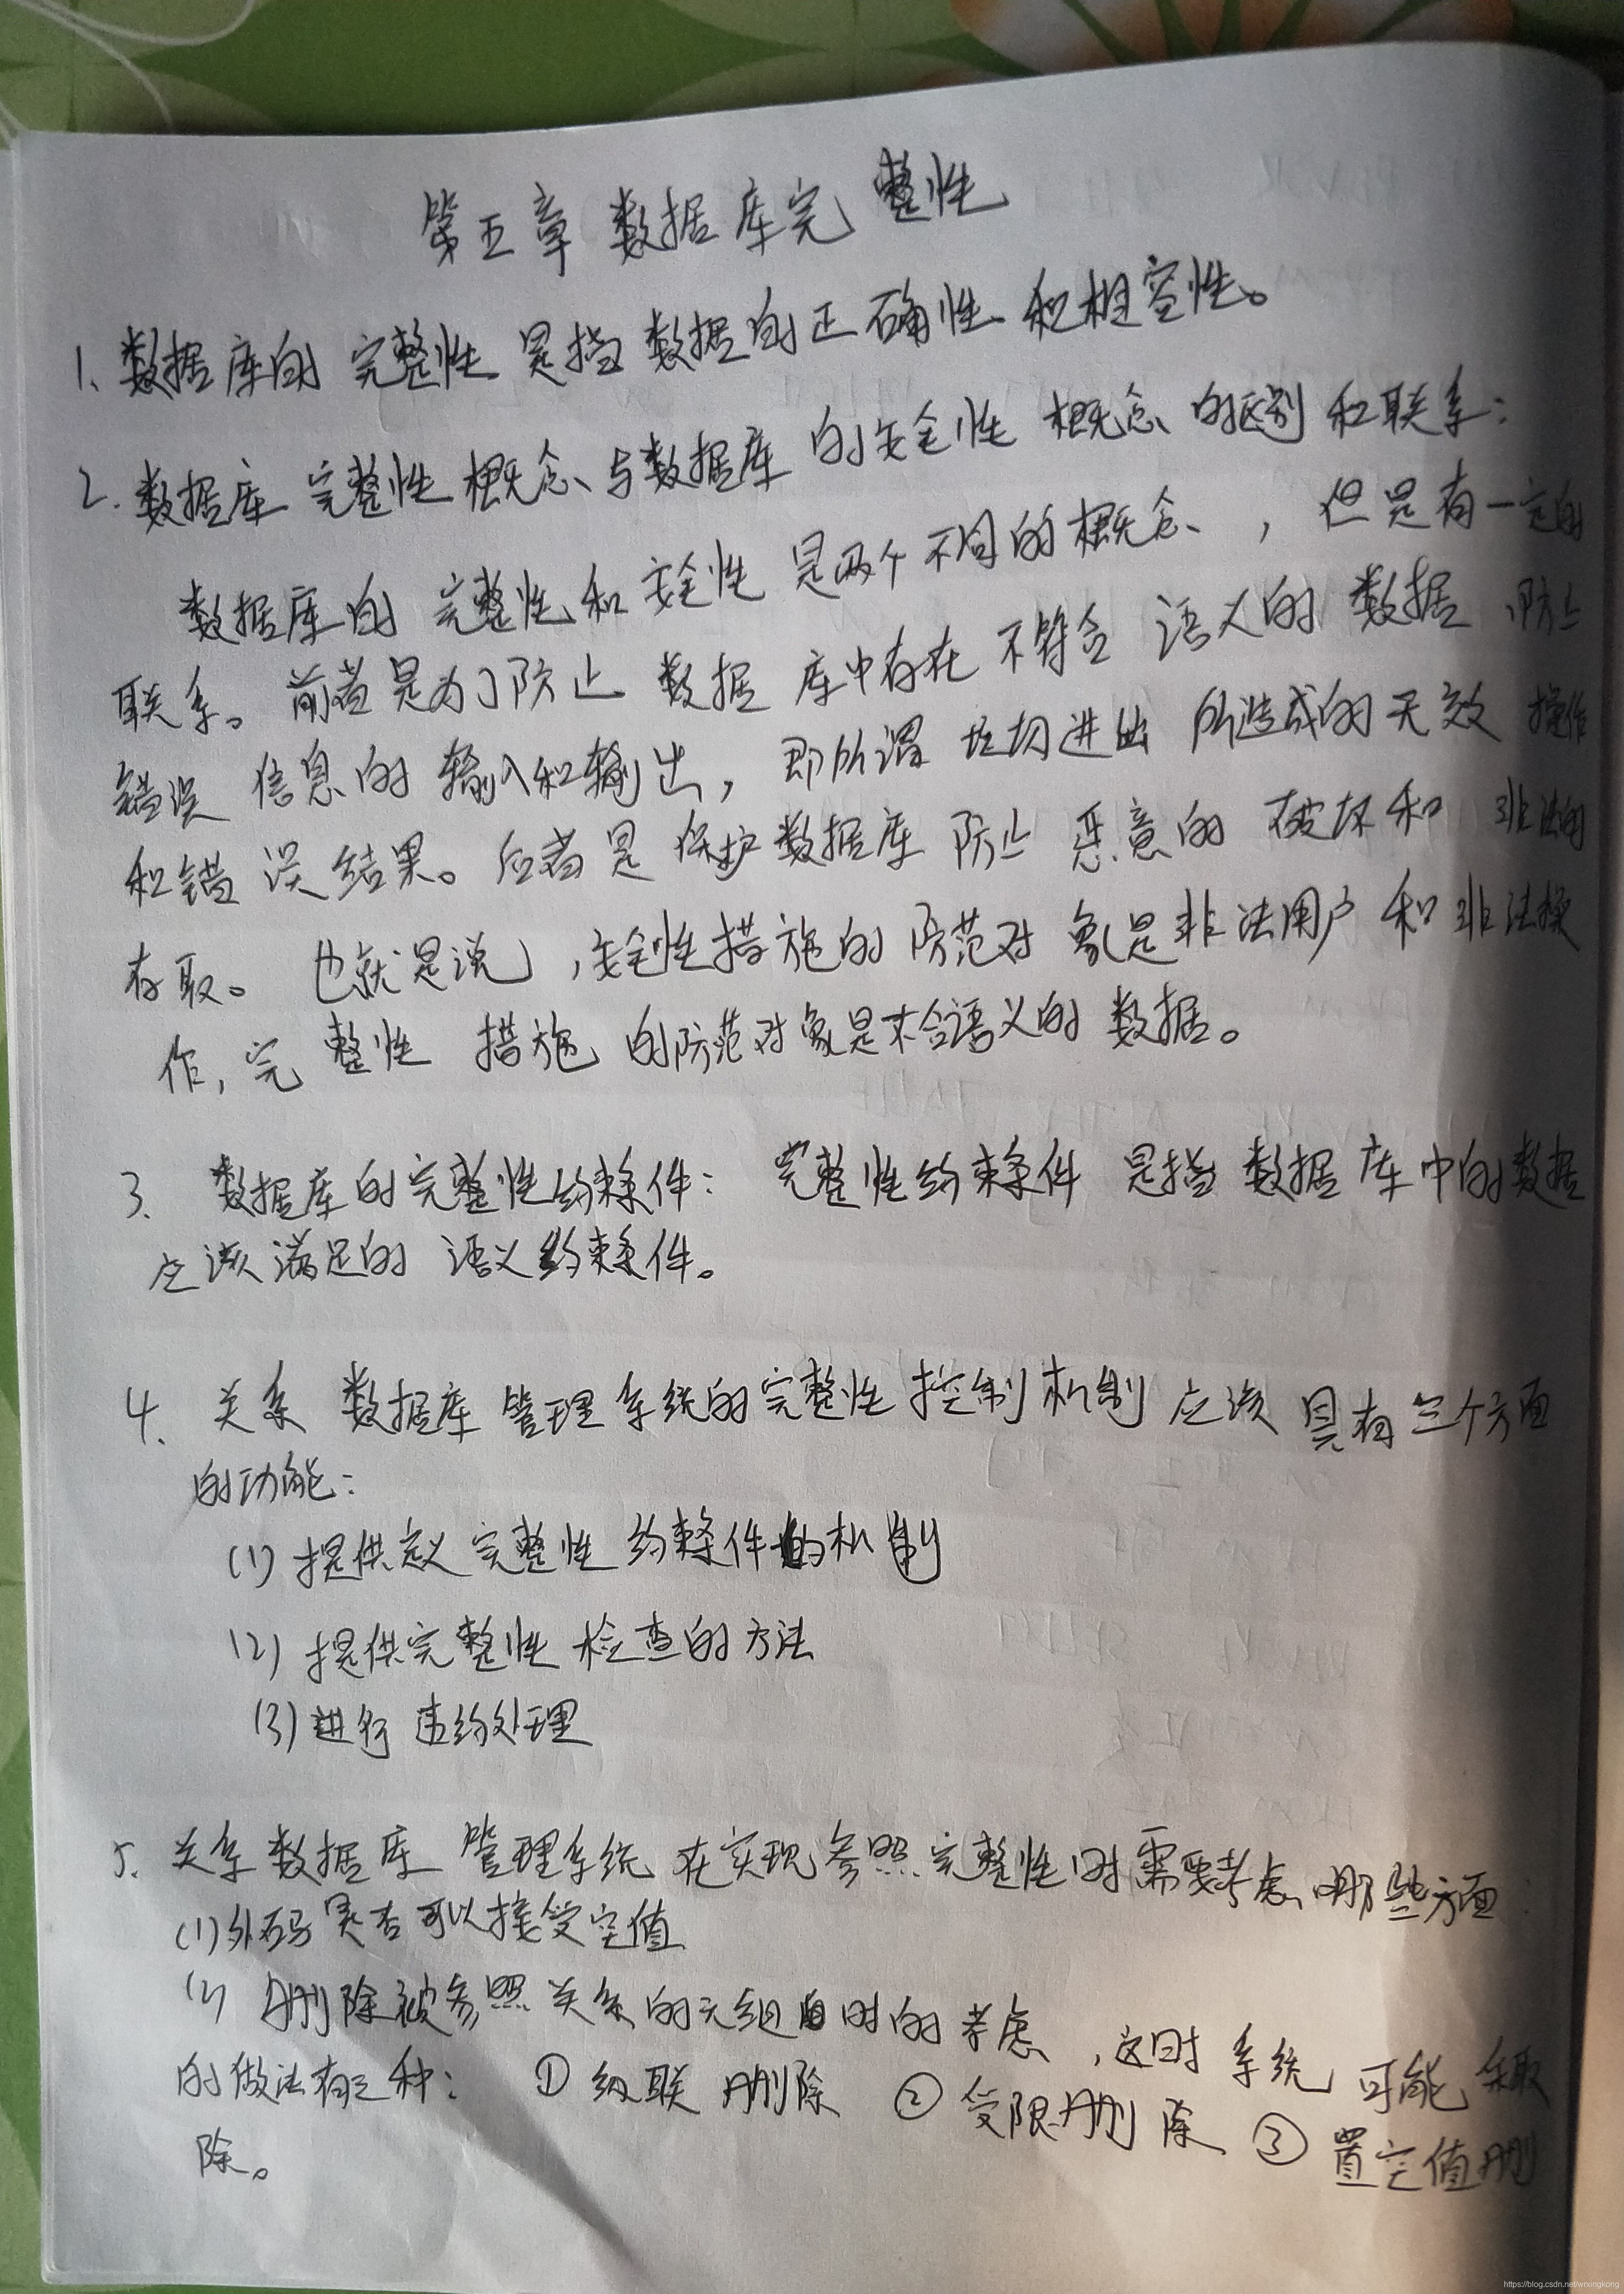 第五章 数据库完整性
1、数据库的完整性是指数据的正确性和相容性。
2.数据库完整性概念与数据库的安全性概念的区别和联系：
数据库的完整性和安全性是两个不同的概念，但是有一定的
联系。前者是为了防止数据库中存在不符合语义的数据 防止
错误信息的输入和输出，即所谓垃圾进出所造成的无效操作
和错误结果。后者是保护数据库防止恶意的破坏和非法的
存取。也就是说，安全性措施的防范对象是非法用户和非法操
作，完整性措施的防范对象是不合语义的数据。
3、数据库的完整性约束条件：完整性约束条件是指数据库中的数据
应该满足的语义约束条件。
4、关系数据库管理系统的完整性控制机制应该具有三个方面
的功能：
(1)提供定义完整性约束条件的机制
(2)提供完整性检查的方法
(3)进行违约处理
5、关系数据库管理系统在实现参照完整性时需要考虑哪些方面：
(1)外码是否可以接受空值
(2)删除被参照关系的元组时的考虑，这时系统可能采取
的做法有三种：①级联删除 ②受限删除 ③置空值删
除。
https://blog.csdn.net/wnxingkong